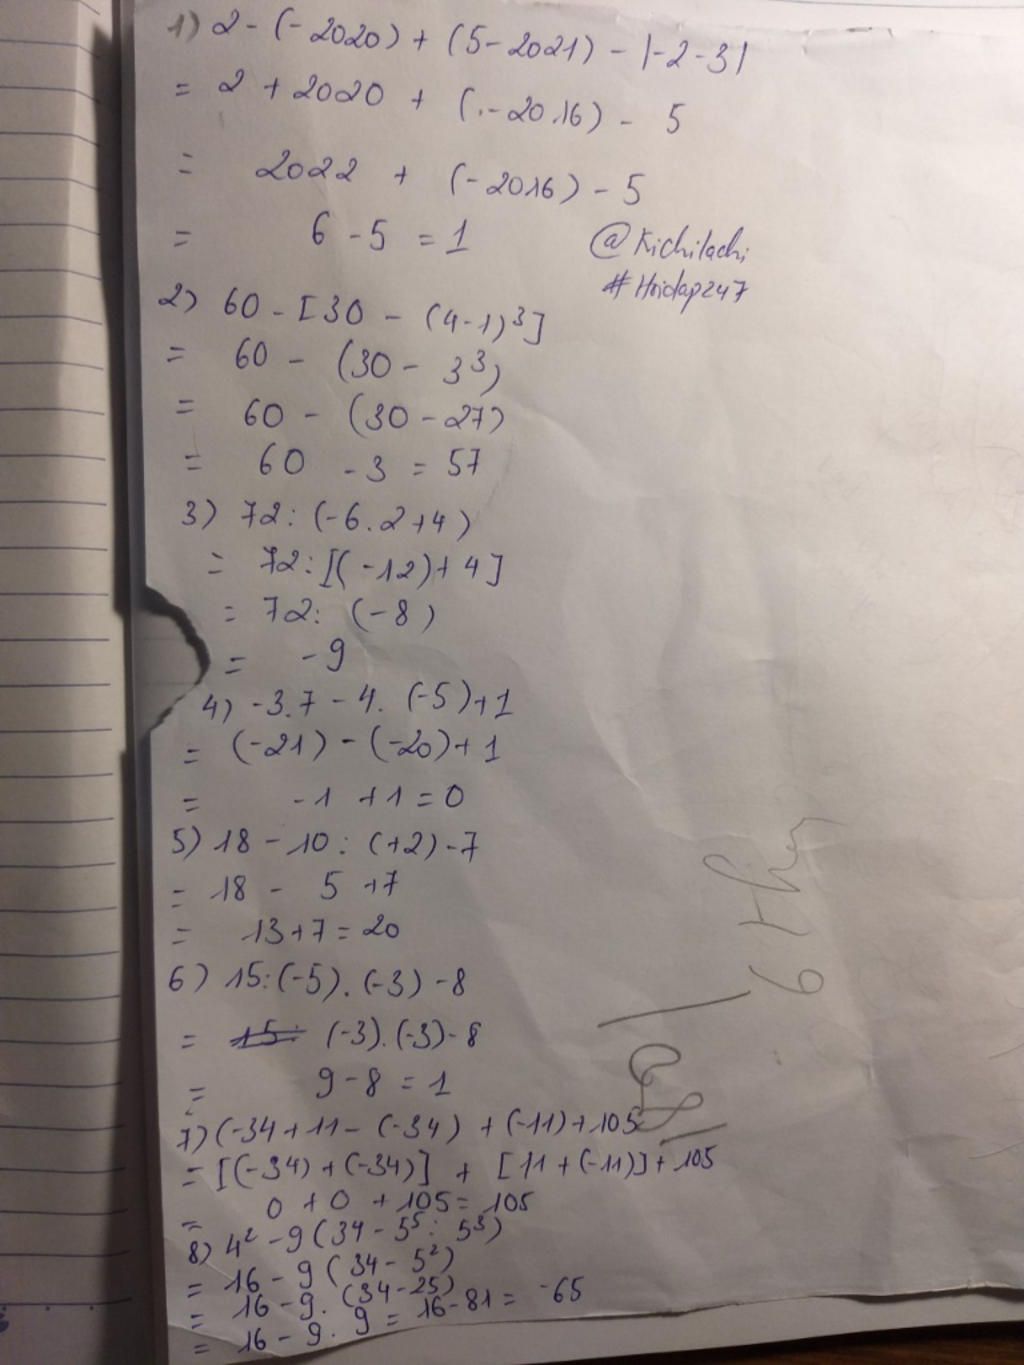 1) 2 - (-2020) + (5-2021) - |-2-3|
= 2 + 2020 + (.-2016) - 5
= 2022 + (-2016) - 5
= 6 - 5 = 1
@Kichilachi
#Hoidap247
2) 60 - [30 - (4-1)³]
= 60 - (30 - 3³)
= 60 - (30 - 27)
= 60 - 3 = 57
3) 72: (-6.2+4)
= 72:[(-12)+4]
= 72: (-8)
= -9
4) -3.7 - 4. (-5)+1
= (-21) - (-20)+1
= -1 +1 = 0
5) 18 - 10 : (+2) - 7
= 18 - 5 +7
= 13+7 = 20
6) 15:(-5).(-3) -8
= 15: (-3).(-3)-8
= 9-8 = 1
7) (-34+11- (-34) + (-11)+105
= [(-34)+(-34)] + [11+(-11)]+105
= 0 + 0 + 105 = 105
8) 4² - 9(34 - 5⁵: 5³)
= 16 - 9(34 - 5²)
= 16 - 9. (34-25)
= 16 - 9. 9 = 16-81 = -65